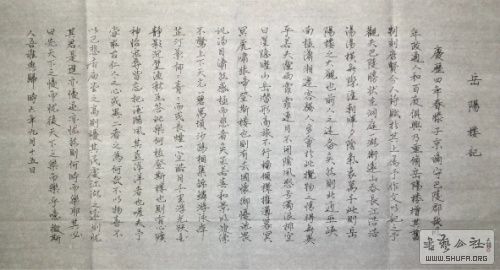 岳陽樓記
慶歷四年春滕子京謫守巴陵郡越明
年政通人和百廢俱興乃重修岳陽樓增其舊
制刻唐賢今人詩賦於其上屬予作文以記之予
觀夫巴陵勝狀在洞庭一湖銜遠山吞長江浩浩
湯湯橫無際涯朝暉夕陰氣象萬千此則岳
陽樓之大觀也前人之述備矣然則北通巫峽
南極瀟湘遷客騷人多會於此覽物之情得無異
乎若夫霪雨霏霏連月不開陰風怒號濁浪排空
日星隱曜山岳潛形商旅不行檣傾楫摧薄暮冥
冥虎嘯猿啼登斯樓也則有去國懷鄉憂讒畏
譏滿目蕭然感極而悲者矣至若春和景明波瀾
不驚上下天光一碧萬頃沙鷗翔集錦鱗游泳岸
芷汀蘭郁郁青青而或長煙一空皓月千里浮光躍金
靜影沉璧漁歌互答此樂何極登斯樓也則有心曠
神怡寵辱皆忘把酒臨風其喜洋洋者矣嗟夫予
嘗求古仁人之心或異二者之為何哉不以物喜不
以己悲居廟堂之高則憂其民處江湖之遠則憂
其君是進亦憂退亦憂然則何時而樂耶其必
曰先天下之憂而憂後天下之樂而樂乎噫微斯
人吾誰與歸時六年九月十五日
書藝公社
WWW.SHUFA.ORG